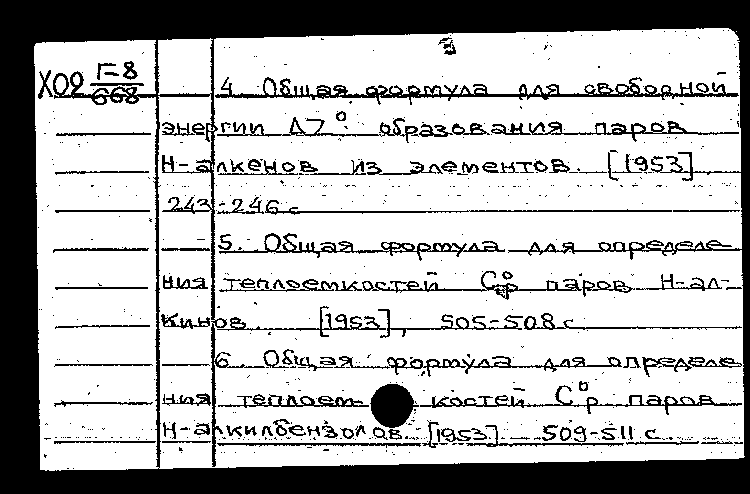 3
Х02 Г-8/668 4. Общая формула для свободной
энергии ΔZ° образования паров
Н-алкенов из элементов. [1953]
243-246 с
5. Общая формула для определе
ния теплоемкостей C°p паров Н-ал-
кинов [1953], 505-508 с
6 Общая формула для определе
ния теплоем- костей C°p паров
Н-алкилбензолов [1953] 509-511 с